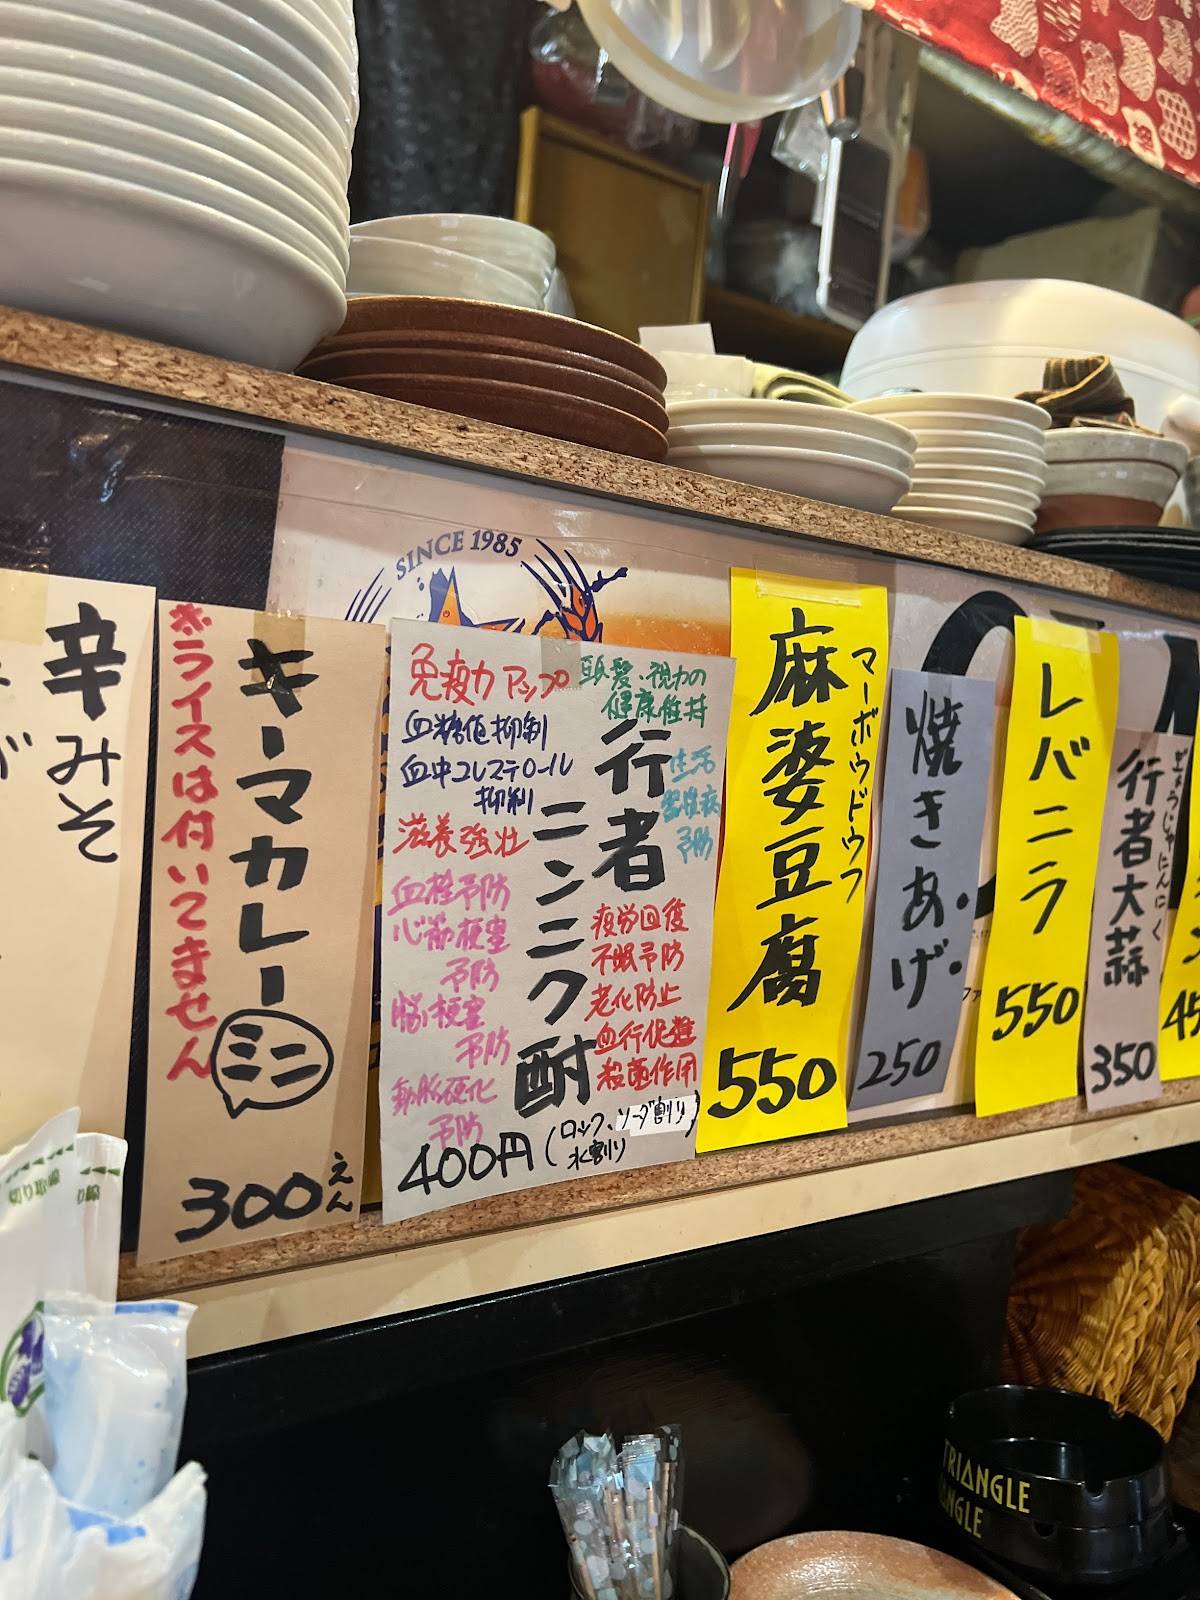 SINCE 1985
辛みそ
※ライスは付いてません
キーマカレー
ミニ
300えん
免疫力アップ
血糖値抑制
血中コレステロール
抑制
滋養強壮
血栓予防
心筋梗塞
予防
脳梗塞
予防
動脈硬化
予防
頭髪・視力の
健康維持
生活
習慣病
予防
行者
ニンニク酎
疲労回復
不眠予防
老化防止
血行促進
殺菌作用
400円(ロック、ソーダ割り
水割り)
マーボウドウフ
麻婆豆腐
550
焼きあげ
250
レバニラ
550
ぎょうじゃにんにく
行者大蒜
350
45
切り取り線
TRIANGLE
ANGLE